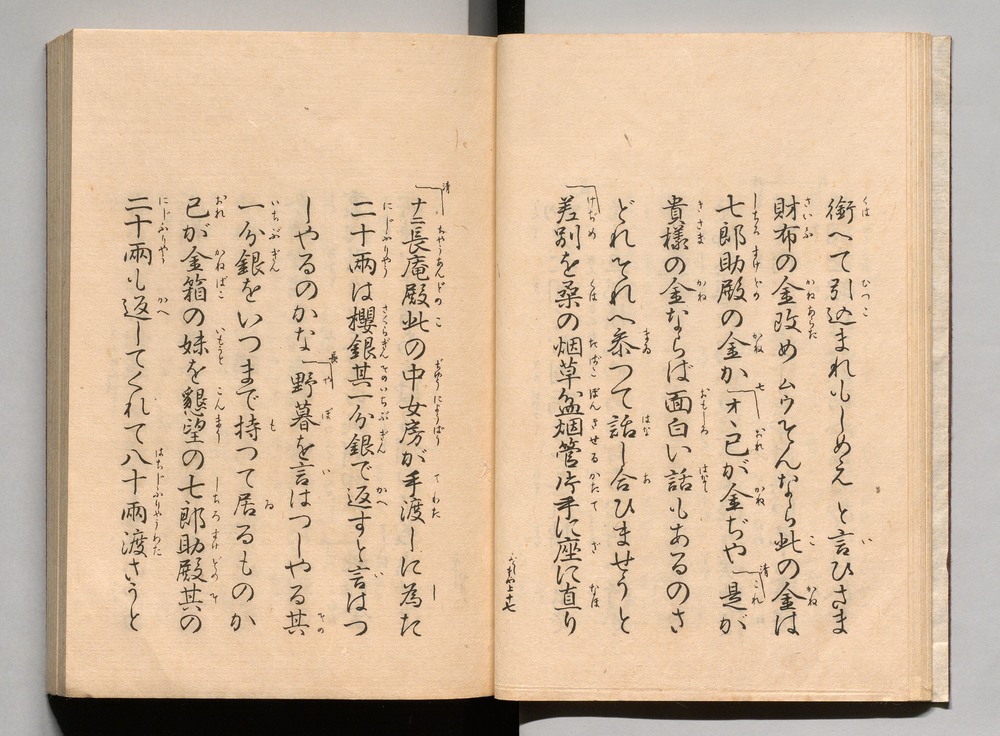 銜へて引込まれもしめえ と言ひさま
財布の金改め ムウそんなら此の金は
七郎助殿の金か 七 オヽ己が金ぢや 清 是が
貴様の金ならば面白い話もあるのさ
どれそれへ参つて話し合ひませうと
差別を桑の烟草盆烟管片手に座に直り
清 ナニ長庵殿此の中女房が手渡しに為た
二十兩は櫻銀其一分銀で返すと言はつ
しやるのかな 長 野暮を言はつしやる其
一分銀をいつまで持つて居るものか
己が金箱の妹を懇望の七郎助殿其の
二十兩も返してくれて八十兩渡さうと